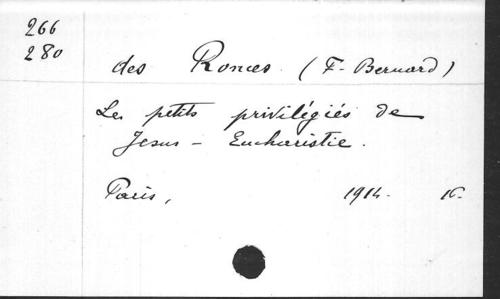 266
280
des Ronces. (F. Bernard)
Les petits privilégiés de
Jesus - Eucharistie.
Paris, 1914. 16.